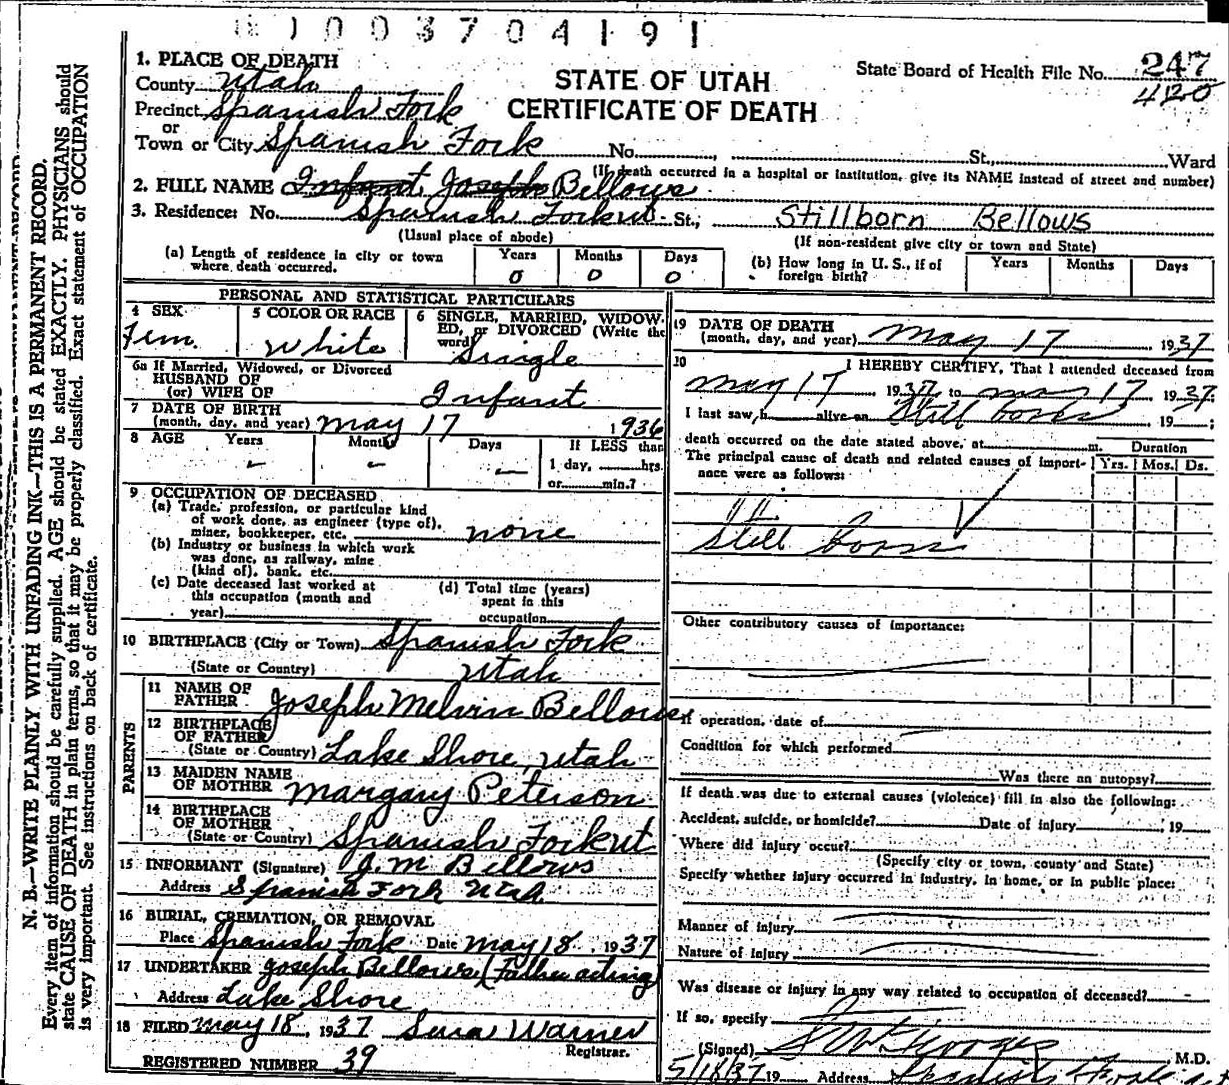 1003704191
1. PLACE OF DEATH
County Utah
STATE OF UTAH
CERTIFICATE OF DEATH
State Board of Health File No. 247
420
Precinct Spanish Fork
or
Town or City Spanish Fork No. St., Ward
(If death occurred in a hospital or institution, give its NAME instead of street and number)
2. FULL NAME Infant Joseph Bellows
3. Residence: No. Spanish Fork ut St., Stillborn Bellows
(Usual place of abode) (If non-resident give city or town and State)
(a) Length of residence in city or town where death occurred. Years 0 Months 0 Days 0
(b) How long in U. S., if of foreign birth? Years Months Days
PERSONAL AND STATISTICAL PARTICULARS
4 SEX Fem.
5 COLOR OR RACE White
6 SINGLE, MARRIED, WIDOWED, or DIVORCED (Write the word) Single
6a If Married, Widowed, or Divorced
HUSBAND OF
(or) WIFE OF Infant
7 DATE OF BIRTH
(month, day, and year) May 17 1936
8 AGE Years Months Days If LESS than
- - - 1 day, hrs.
or min.?
9 OCCUPATION OF DECEASED
(a) Trade, profession, or particular kind
of work done, as engineer (type of),
miner, bookkeeper, etc. none
(b) Industry or business in which work
was done, as railway, mine
(kind of), bank, etc.
(c) Date deceased last worked at
this occupation (month and
year)
(d) Total time (years)
spent in this
occupation
10 BIRTHPLACE (City or Town) Spanish Fork
(State or Country) Utah
PARENTS
11 NAME OF
FATHER Joseph Melvin Bellows
12 BIRTHPLACE
OF FATHER
(State or Country) Lake Shore, Utah
13 MAIDEN NAME
OF MOTHER Margary Peterson
14 BIRTHPLACE
OF MOTHER
(State or Country) Spanish Fork ut
15 INFORMANT (Signature) J. M. Bellows
Address Spanish Fork Utah
16 BURIAL, CREMATION, OR REMOVAL
Place Spanish Fork Date May 18 1937
17 UNDERTAKER Joseph Bellows (Father acting)
Address Lake Shore
18 FILED May 18, 1937 Sena Warner
Registrar.
REGISTERED NUMBER 39
19 DATE OF DEATH
(month, day, and year) May 17 1937
20 I HEREBY CERTIFY, That I attended deceased from
May 17 1937 to May 17, 1937;
I last saw h alive on Still born, 19 ;
death occurred on the date stated above, at m. Duration
The principal cause of death and related causes of importance were as follows: Yrs. Mos. Ds.
Still born
Other contributory causes of importance:
If operation, date of
Condition for which performed
Was there an autopsy?
If death was due to external causes (violence) fill in also the following:
Accident, suicide, or homicide? Date of injury , 19
Where did injury occur?
(Specify city or town, county and State)
Specify whether injury occurred in industry, in home, or in public place:
Manner of injury
Nature of injury
Was disease or injury in any way related to occupation of deceased? -
If so, specify
(Signed) M.D.
5/18/37 19 Address Spanish Fork
N. B.—WRITE PLAINLY WITH UNFADING INK—THIS IS A PERMANENT RECORD.
Every item of information should be carefully supplied. AGE should be stated EXACTLY. PHYSICIANS should
state CAUSE OF DEATH in plain terms, so that it may be properly classified. Exact statement of OCCUPATION
is very important. See instructions on back of certificate.